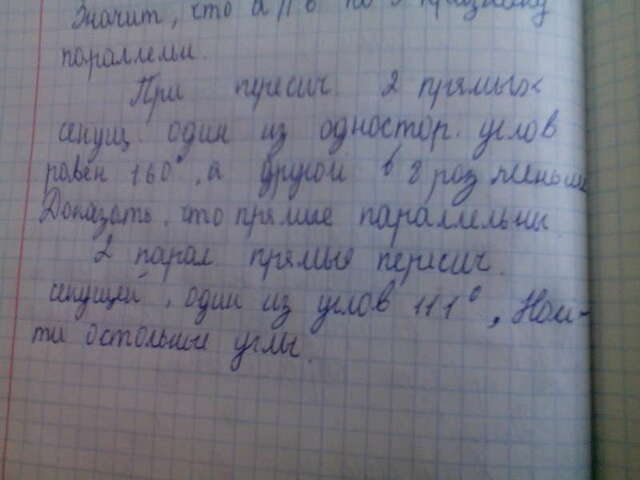 Значит, что a || b по 3 признаку
параллельн.
При пересич. 2 прямых
секущ. один из одностор. углов
равен 160°, а другой в 8 раз меньше
Доказать, что прямые параллельны.
2 парал. прямые пересич.
секущей, один из углов 111°, Най-
ти остольные углы.